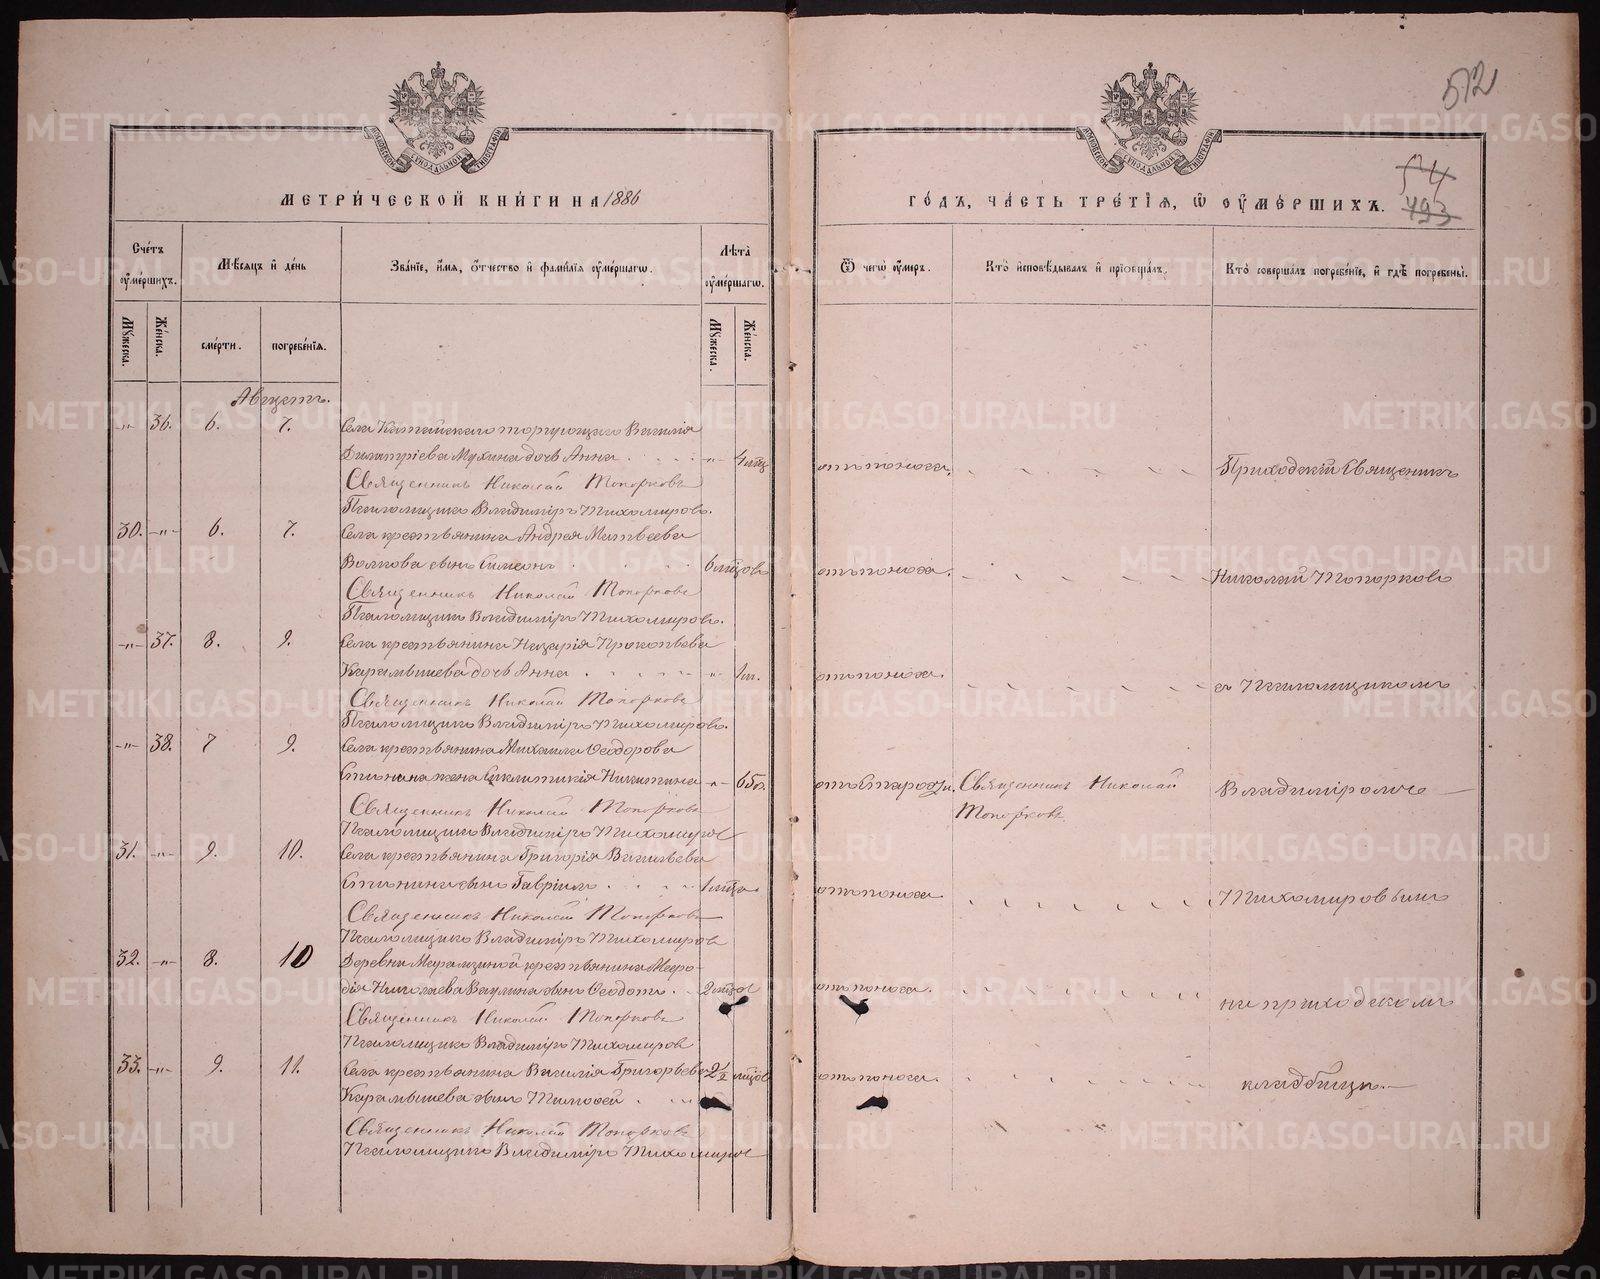 512
54
493
МЕТРИЧЕСКОЙ КНИГИ НА 1886
ГОДЪ, ЧАСТЬ ТРЕТІЯ, Ѿ ОУМЕРШИХЪ.
Счетъ оумершихъ.
Мѣсяцъ и день
Званіе, имя, отчество и фамилія оумершагѡ.
Лѣта оумершагѡ.
Ѿ чегѡ оумеръ.
Кто исповѣдывалъ и пріобщалъ.
Кто совершалъ погребеніе, и гдѣ погребены.
Мужеска.
Женска.
смерти.
погребенія.
Мужеска.
Женска.
Августъ.
36. 6. 7. Села Катайскаго торгующаго Василія
Димитріева Мухина дочь Анна 4 мѣц отъ поноса. Приходскій Священникъ
Священникъ Николай Топорковъ
Псаломщикъ Владиміръ Тихомировъ.
30. 6. 7. Села крестьянина Андрея Матвѣева
Волкова сынъ Симеонъ 6 мѣцовъ отъ поноса. Николай Топорковъ
Священникъ Николай Топорковъ
Псаломщикъ Владиміръ Тихомировъ.
37. 8. 9. Села крестьянина Назарія Прокопьева
Карамышева дочь Анна 1 м. отъ поноса. съ Псаломщикомъ
Священникъ Николай Топорковъ
Псаломщикъ Владиміръ Тихомировъ.
38. 7 9. Села крестьянина Михаила Ѳеодорова
жена Синклитикія Никитина 65 л. отъ Старости. Священникъ Николай Топорковъ Владиміромъ
Священникъ Николай Топорковъ
Псаломщикъ Владиміръ Тихомировъ
31. 9. 10. Села крестьянина Григорія Васильева
сынъ Гавріилъ 1 мѣца отъ поноса Тихомировымъ
Священникъ Николай Топорковъ
Псаломщикъ Владиміръ Тихомировъ
32. 8. 10 Деревни крестьянина Меѳо-
дія Николаева Ваулина сынъ Ѳеодотъ 2 мѣцов отъ поноса. на приходскомъ
Священникъ Николай Топорковъ
Псаломщикъ Владиміръ Тихомировъ
33. 9. 11. Села крестьянина Василія Григорьева 2 1/2 мѣцов отъ поноса. кладбищѣ.
Карамышева сынъ Тимоѳей
Священникъ Николай Топорковъ
Псаломщикъ Владиміръ Тихомировъ
METRIKI.GASO-URAL.RU